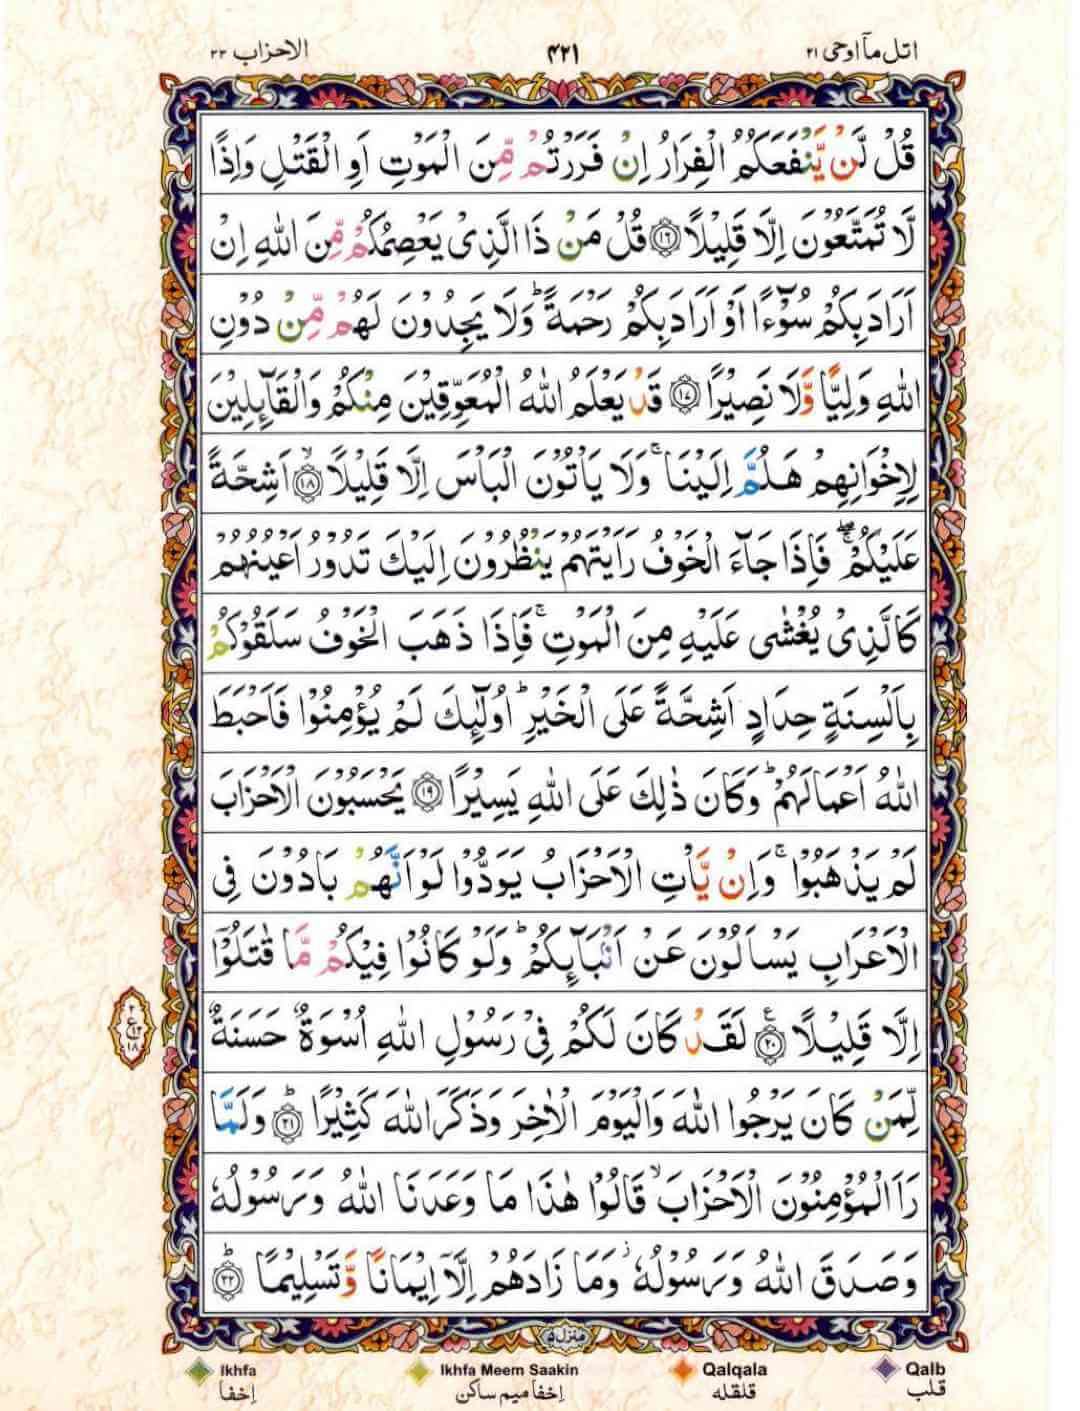 اتل مآ اوحی ۲۱ ۴۲۱ الاحزاب ۳۳
قُلْ لَّنْ يَّنْفَعَكُمُ الْفِرَارُ اِنْ فَرَرْتُمْ مِّنَ الْمَوْتِ اَوِ الْقَتْلِ وَاِذًا
لَّا تُمَتَّعُوْنَ اِلَّا قَلِيْلًا ۝۱۶ قُلْ مَنْ ذَا الَّذِىْ يَعْصِمُكُمْ مِّنَ اللّٰهِ اِنْ
اَرَادَ بِكُمْ سُوْٓءًا اَوْ اَرَادَ بِكُمْ رَحْمَةً ؕ وَلَا يَجِدُوْنَ لَهُمْ مِّنْ دُوْنِ
اللّٰهِ وَلِيًّا وَّلَا نَصِيْرًا ۝۱۷ قَدْ يَعْلَمُ اللّٰهُ الْمُعَوِّقِيْنَ مِنْكُمْ وَالْقَآئِلِيْنَ
لِاِخْوَانِهِمْ هَلُمَّ اِلَيْنَا ۚ وَلَا يَاْتُوْنَ الْبَاْسَ اِلَّا قَلِيْلًا ۙ۝۱۸ اَشِحَّةً
عَلَيْكُمْ ۖۚ فَاِذَا جَآءَ الْخَوْفُ رَاَيْتَهُمْ يَنْظُرُوْنَ اِلَيْكَ تَدُوْرُ اَعْيُنُهُمْ
كَالَّذِىْ يُغْشٰى عَلَيْهِ مِنَ الْمَوْتِ ۚ فَاِذَا ذَهَبَ الْخَوْفُ سَلَقُوْكُمْ
بِاَلْسِنَةٍ حِدَادٍ اَشِحَّةً عَلَى الْخَيْرِ ؕ اُولٰٓئِكَ لَمْ يُؤْمِنُوْا فَاَحْبَطَ
اللّٰهُ اَعْمَالَهُمْ ؕ وَكَانَ ذٰلِكَ عَلَى اللّٰهِ يَسِيْرًا ۝۱۹ يَحْسَبُوْنَ الْاَحْزَابَ
لَمْ يَذْهَبُوْا ۚ وَاِنْ يَّاْتِ الْاَحْزَابُ يَوَدُّوْا لَوْ اَنَّهُمْ بَادُوْنَ فِى
الْاَعْرَابِ يَسْاَلُوْنَ عَنْ اَنْۢبَآئِكُمْ ؕ وَلَوْ كَانُوْا فِيْكُمْ مَّا قٰتَلُوْۤا
اِلَّا قَلِيْلًا ۝۲۰ ع لَقَدْ كَانَ لَكُمْ فِىْ رَسُوْلِ اللّٰهِ اُسْوَةٌ حَسَنَةٌ
۲ ع ۱۲ ۱۸
لِّمَنْ كَانَ يَرْجُوا اللّٰهَ وَالْيَوْمَ الْاٰخِرَ وَذَكَرَ اللّٰهَ كَثِيْرًا ؕ۝۲۱ وَلَمَّا
رَاَ الْمُؤْمِنُوْنَ الْاَحْزَابَ ۙ قَالُوْا هٰذَا مَا وَعَدَنَا اللّٰهُ وَرَسُوْلُهٗ
وَصَدَقَ اللّٰهُ وَرَسُوْلُهٗ ؗ وَمَا زَادَهُمْ اِلَّاۤ اِيْمَانًا وَّتَسْلِيْمًا ؕ۝۲۲
منزل ۵
Ikhfa Ikhfa Meem Saakin Qalqala Qalb
اِخفا اِخفا میم ساکن قلقله قلب